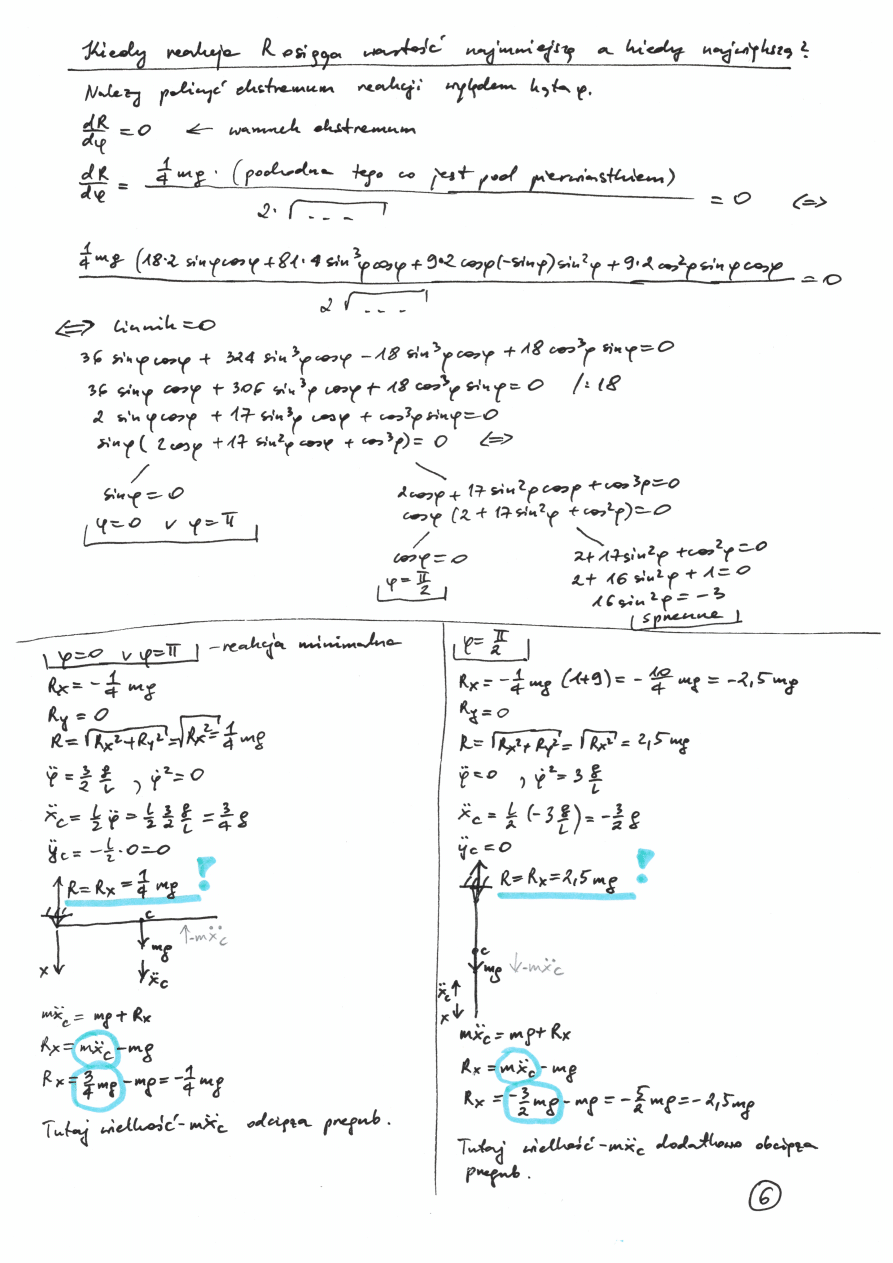 Kiedy reakcja R osiąga wartość najmniejszą a kiedy największą?
Należy policzyć ekstremum reakcji względem kąta φ.
dR/dφ = 0 ← warunek ekstremum
dR/dφ = 1/4 mg · (pochodna tego co jest pod pierwiastkiem) / 2·√(...) = 0 <=>
1/4 mg (18·2 sinφcosφ + 81·4 sin³φcosφ + 9·2 cosφ(-sinφ)sin²φ + 9·2 cos²φsinφcosφ / 2√(...) = 0
<=> licznik = 0
36 sinφcosφ + 324 sin³φcosφ - 18 sin³φcosφ + 18 cos³φ sinφ = 0
36 sinφ cosφ + 306 sin³φ cosφ + 18 cos³φ sinφ = 0 /:18
2 sinφcosφ + 17 sin³φ cosφ + cos³φ sinφ = 0
sinφ( 2cosφ + 17 sin²φ cosφ + cos³φ) = 0 <=>
sinφ = 0
φ=0 v φ=π
2cosφ + 17 sin²φcosφ + cos³φ = 0
cosφ (2 + 17sin²φ + cos²φ) = 0
cosφ = 0
φ = π/2
2+17sin²φ + cos²φ = 0
2+ 16 sin²φ + 1 = 0
16 sin²φ = -3
sprzeczne
φ=0 v φ=π - reakcja minimalna
Rx = -1/4 mg
Ry = 0
R = √(Rx²+Ry²) = √(Rx²) = 1/4 mg
φ̈ = 3/2 g/L , φ̇² = 0
ẍc = L/2 φ̈ = L/2 3/2 g/L = 3/4 g
ÿc = -L/2 · 0 = 0
R = Rx = 1/4 mg !
c
↑-mẍc
mg
x
ẍc
mẍc = mg + Rx
Rx = mẍc - mg
Rx = 3/4 mg - mg = -1/4 mg
Tutaj wielkość -mẍc odciąża przegub.
φ = π/2
Rx = -1/4 mg (1+9) = -10/4 mg = -2,5 mg
Ry = 0
R = √(Rx²+Ry²) = √(Rx²) = 2,5 mg
φ̈ = 0 , φ̇² = 3 g/L
ẍc = L/2 (-3 g/L) = -3/2 g
ÿc = 0
R = Rx = 2,5 mg !
c
mg ↓-mẍc
ẍc ↑
x ↓
mẍc = mg + Rx
Rx = mẍc - mg
Rx = -3/2 mg - mg = -5/2 mg = -2,5 mg
Tutaj wielkość -mẍc dodatkowo obciąża
przegub.
6